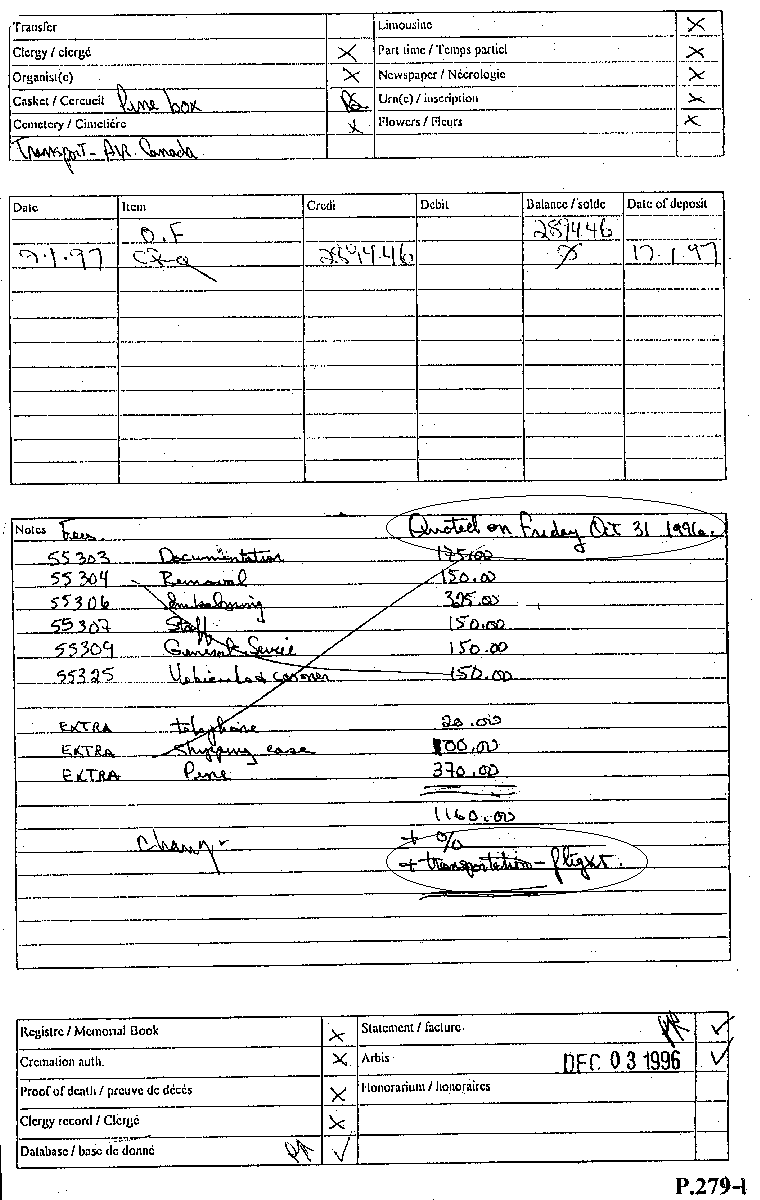 Transfer
Limousine X
Clergy / clergé X
Part time / Temps partiel X
Organist(e) X
Newspaper / Nécrologie X
Casket / Cercueil Pine box
Urn(e) / inscription X
Cemetery / Cimetiére X
Flowers / Fleurs X
Transport - Air Canada
Date Item Credi Debit Balance / solde Date of deposit
O.F 2894.46
9.1.97 2894.46 17.1.97
Notes Fees. Quoted on Friday Oct 31 1996.
55303 Documentation 175.00
55304 Removal 150.00
55306 Embalming 325.00
55307 Staff 150.00
55309 General Servie 150.00
55325 Vehicule & coroner 150.00
EXTRA telephone 20.00
EXTRA Shipping case 100.00
EXTRA Pine 370.00
1160.00
Change + %
+ transportation - flight.
Registre / Memorial Book X
Statement / facture ✓
Cremation auth. X
Arbis DEC 03 1996 ✓
Proof of death / preuve de décés X
Honorarium / honoraires
Clergy record / Clergé X
Database / base de donné ✓
P.279-1